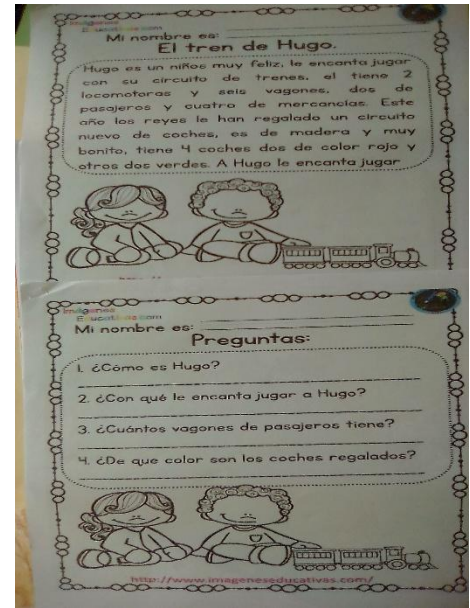 Imágenes
Educativas.com
Mi nombre es:
El tren de Hugo.
Hugo es un niños muy feliz, le encanta jugar
con su circuito de trenes, el tiene 2
locomotoras y seis vagones, dos de
pasajeros y cuatro de mercancías. Este
año los reyes le han regalado un circuito
nuevo de coches, es de madera y muy
bonito, tiene 4 coches dos de color rojo y
otros dos verdes. A Hugo le encanta jugar
Imágenes
Educativas.com
Mi nombre es:
Preguntas:
1. ¿Cómo es Hugo?
2. ¿Con qué le encanta jugar a Hugo?
3. ¿Cuántos vagones de pasajeros tiene?
4. ¿De que color son los coches regalados?
http://www.imageneseducativas.com/